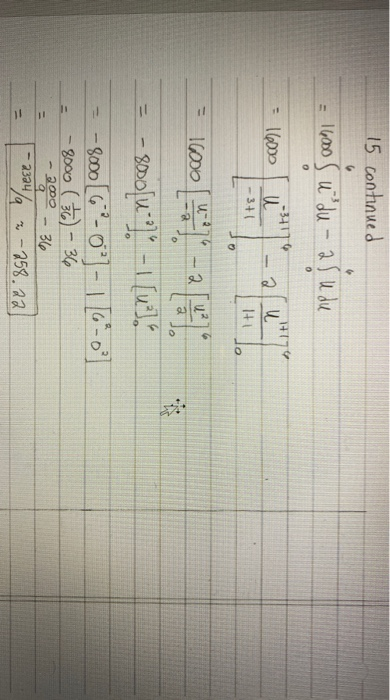 15 continued
= 16000 ∫₀⁶ u⁻³ du - 2 ∫₀⁶ u du
= 16000 [u⁻³⁺¹/-3+1]₀⁶ - 2 [u¹⁺¹/1+1]₀⁶
= 16000 [u⁻²/-2]₀⁶ - 2 [u²/2]₀⁶
= -8000 [u⁻²]₀⁶ - 1 [u²]₀⁶
= -8000 [6⁻² - 0⁻²] - 1 [6² - 0²]
= -8000 (1/36) - 36
= -2000/9 - 36
= -2324/9 ≈ -258.22